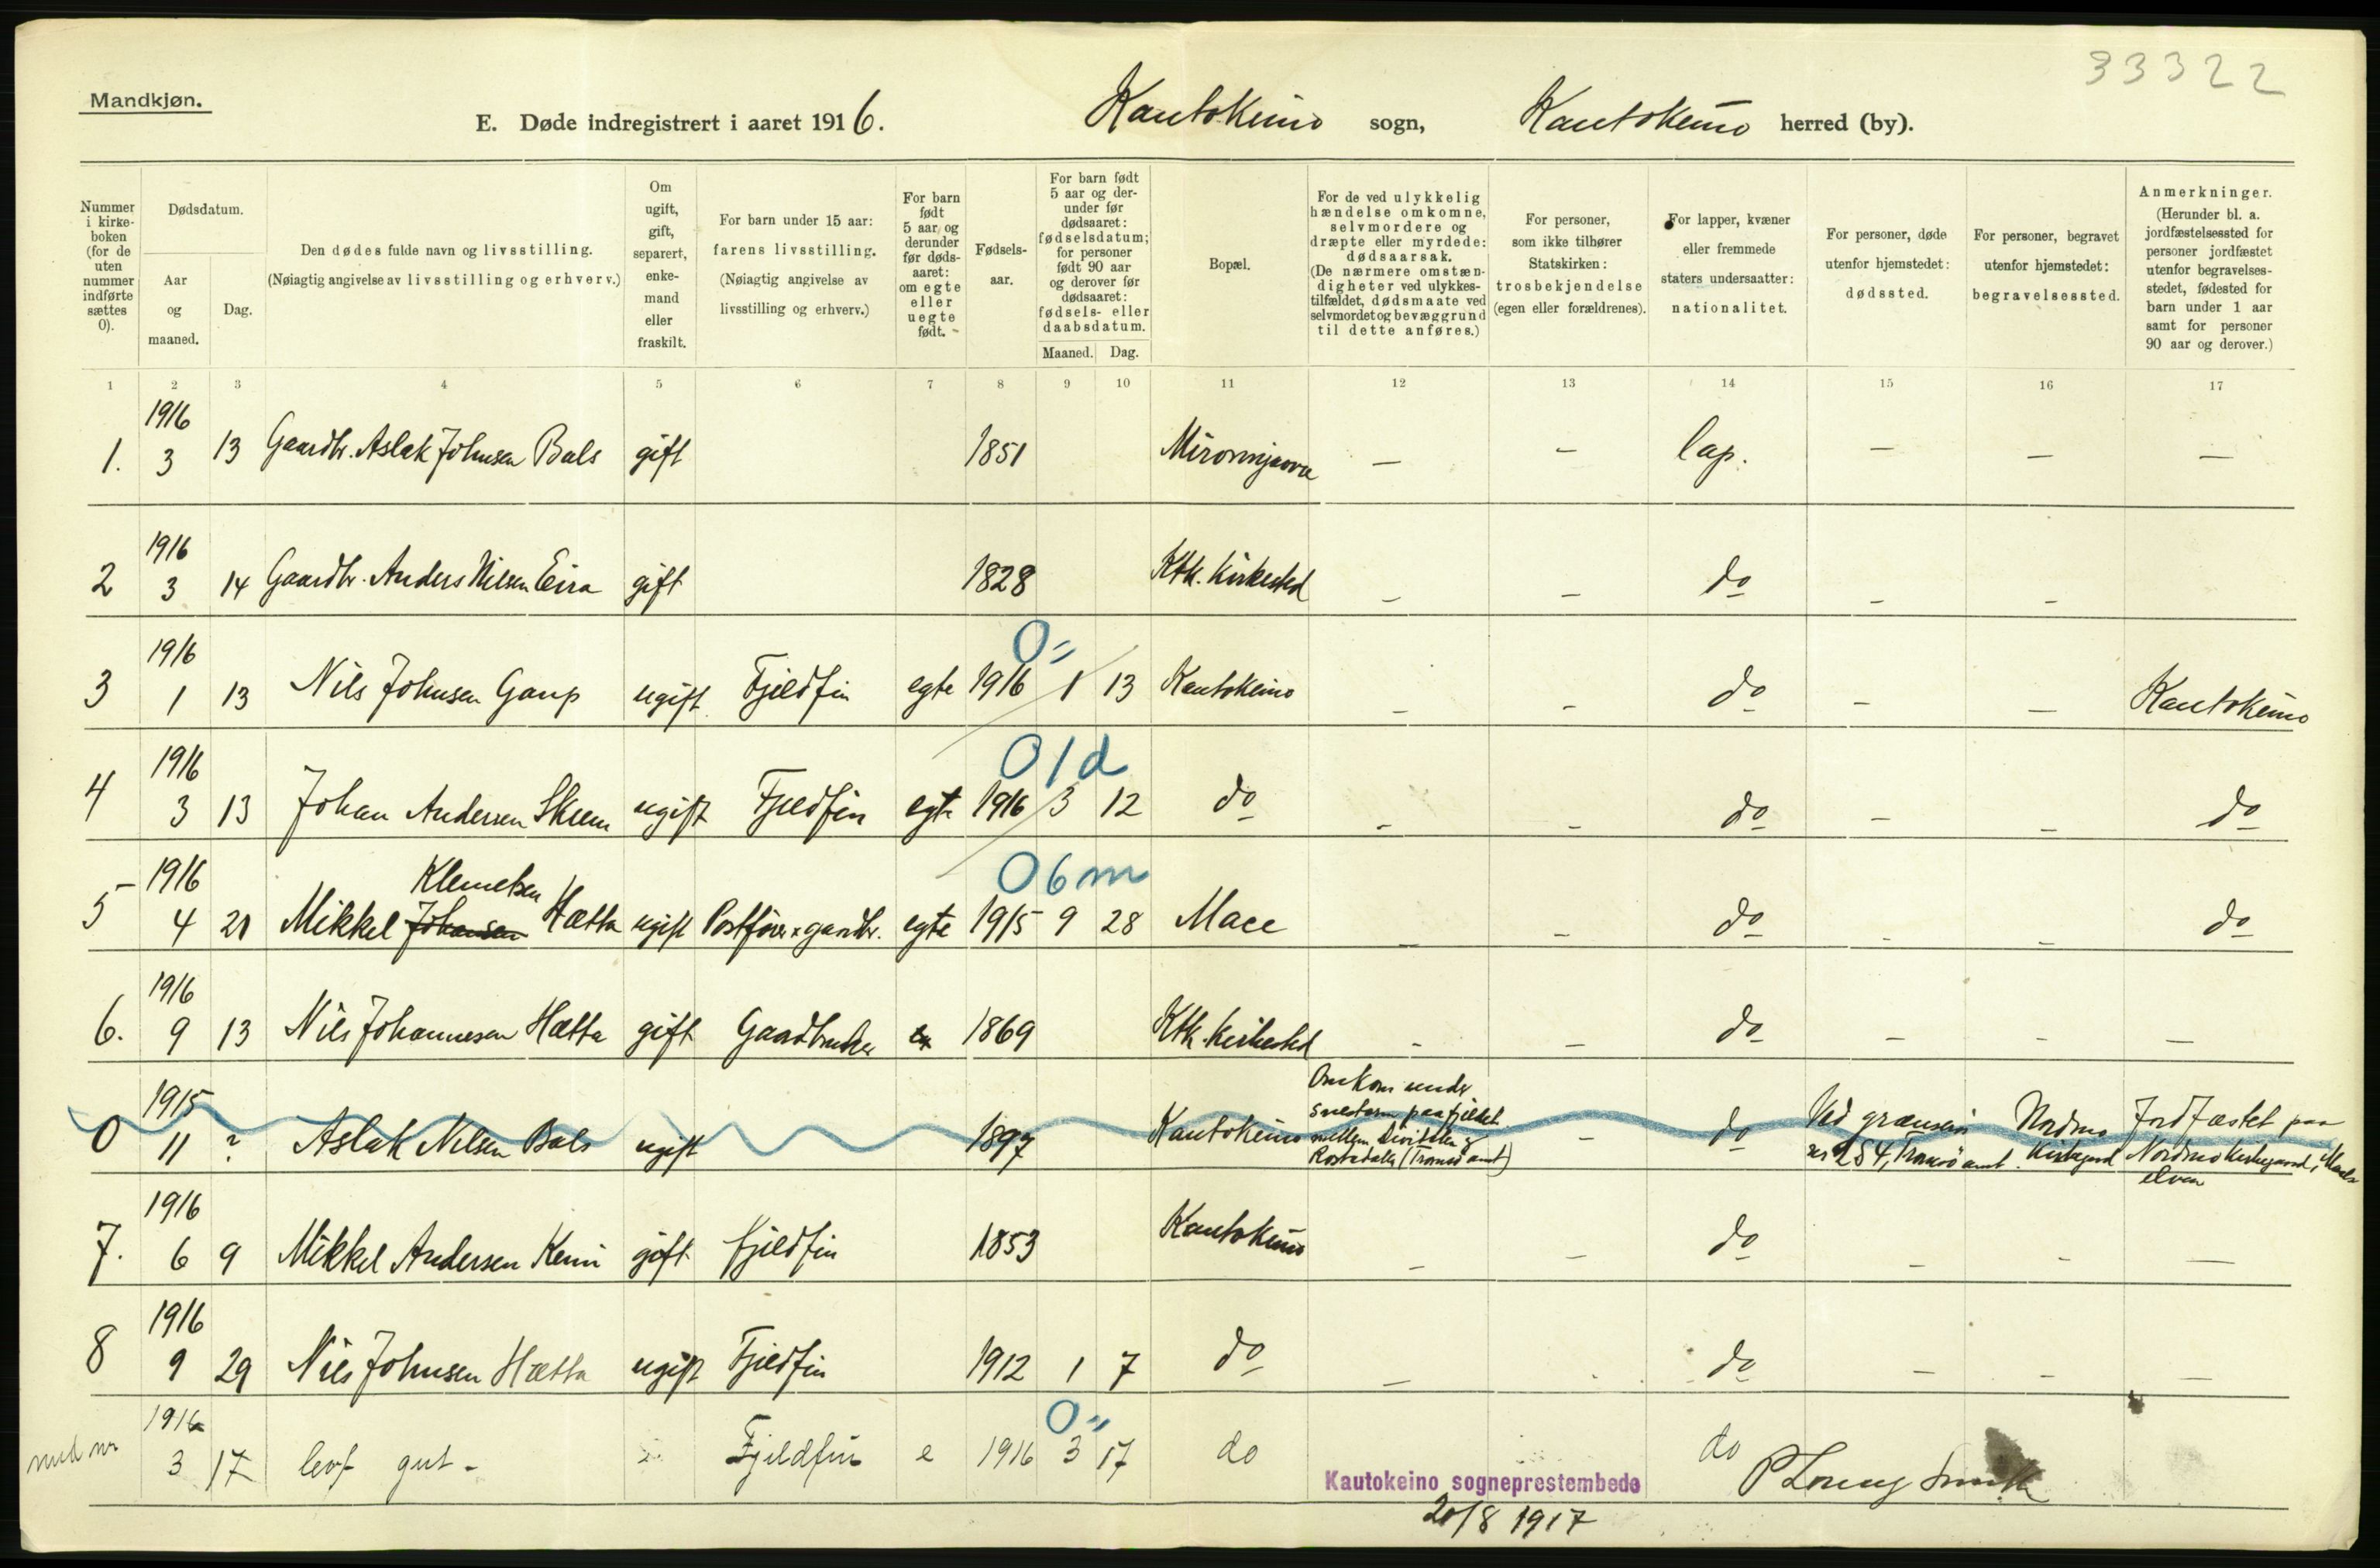 33322
Mandkjøn.
E. Døde indregistrert i aaret 1916. Kautokeino sogn, Kautokeino herred (by).
Nummer i kirke-boken (for de uten nummer indførte sættes 0).
Dødsdatum.
Aar og maaned.
Dag.
Den dødes fulde navn og livsstilling.
(Nøiagtig angivelse av livsstilling og erhverv.)
Om ugift, gift, separert, enke-mand eller fraskilt.
For barn under 15 aar: farens livsstilling.
(Nøiagtig angivelse av livsstilling og erhverv.)
For barn født 5 aar og derunder før døds-aaret: om egte eller uegte født.
Fødsels-aar.
For barn født 5 aar og der-under før dødsaaret: fødselsdatum; for personer født 90 aar og derover før dødsaaret: fødsels- eller daabsdatum.
Maaned. Dag.
Bopæl.
For de ved ulykkelig hændelse omkomne, selvmordere og dræpte eller myrdede: dødsaarsak.
(De nærmere omstæn-digheter ved ulykkes-tilfældet, dødsmaate ved selvmordet og bevæggrund til dette anføres.)
For personer, som ikke tilhører Statskirken: trosbekjendelse (egen eller forældrenes).
For lapper, kvæner eller fremmede staters undersaatter: nationalitet.
For personer, døde utenfor hjemstedet: dødssted.
For personer, begravet utenfor hjemstedet: begravelsessted.
Anmerkninger.
(Herunder bl. a. jordfæstelsessted for personer jordfæstet utenfor begravelses-stedet, fødested for barn under 1 aar samt for personer 90 aar og derover.)
1 2 3 4 5 6 7 8 9 10 11 12 13 14 15 16 17
1916
1. 3 13 Gaardbr. Aslak Johnsen Bals gift 1851 Mironnjaova — — lap. — — —
1916
2 3 14 Gaardbr. Anders Nilsen Eira gift 1828 Ktk. Kirkested — — do — —
1916 0"
3 1 13 Nils Johnsen Gaup ugift Fjeldfin egte 1916 1 13 Kautokeino — — do — — Kautokeino
1916 0 1 d
4 3 13 Johan Andersen Skum ugift Fjeldfin egte 1916 3 12 do — — do — — do
1916 Klemetsen 0 6 m
5 4 21 Mikkel Johansen Hætta ugift Postfører & gaardbr. egte 1915 9 28 Mace — — do — — do
1916
6. 9 13 Nils Johannesen Hætta gift Gaardbruker 1869 Ktk. Kirkested — — do — — —
1915 Omkom under
snestorm paa fjeldet
0 11 ? Aslak Nilsen Bals ugift 1897 Kautokeino mellem Divitalen & — do Ved grænsen Nordmo Jordfæstet paa
Rostadalen (Tromsø amt) nr 254, Tromsø amt. Kirkegaard Nordmo Kirkegaard, Maals
elven
1916
7. 6 9 Mikkel Andersen Kemi gift fjeldfin 1853 Kautokeino — — do — — —
1916
8 9 29 Nils Johnsen Hætta ugift Fjeldfin 1912 1 7 do — do — — —
1916 0"
3 17 levf gut - Fjeldfin e 1916 3 17 do do
Kautokeino sogneprestembede
P Lorung Smith
20/8 1917